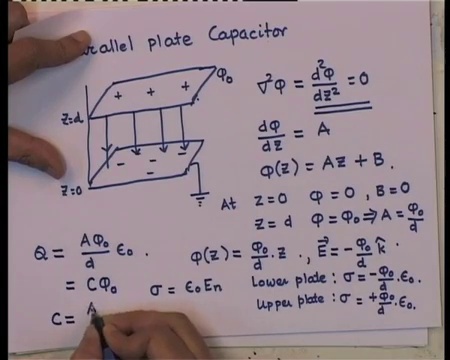 rallel plate Capacitor
+ + + φ₀
z=d
- - - - -
z=0
∇²φ = d²φ/dz² = 0
dφ/dz = A
φ(z) = Az + B.
At z=0 φ=0, B=0
z=d φ=φ₀ ⇒ A = φ₀/d
φ(z) = φ₀/d . z, E⃗ = -φ₀/d k̂.
Q = Aφ₀/d ε₀.
= Cφ₀
σ = ε₀En
Lower plate : σ = -φ₀/d . ε₀.
Upper plate : σ = +φ₀/d . ε₀.
C = A